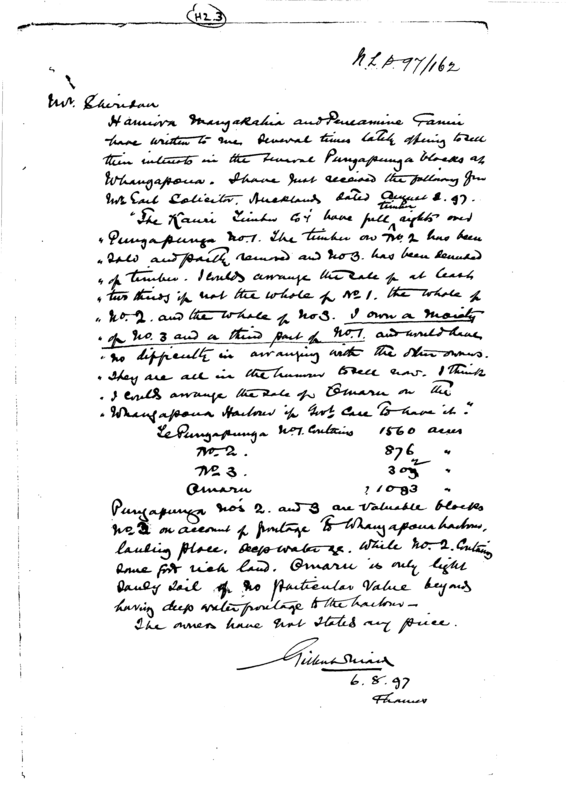 H2.3
N.L.P. 97/162
Mr. Sheridan
Hamiora Mangakahia and Peneamine Tanui
have written to me several times lately offering to sell
their interests in the several Pungapunga blocks at
Whangapoua. I have just received the following from
Mr Earl Solicitor, Auckland dated August 2. 97.
"The Kauri Timber Co'y have full timber rights over
"Pungapunga No.1. The timber on No. 2 has been
"sold and partly removed and No 3. has been denuded
"of timber. I could arrange the sale of at least
"two thirds if not the whole of No 1. the whole of
"No. 2. and the whole of No 3. I own a moiety
"of No. 3 and a third part of No. 1. and would have
"no difficulty in arranging with the other owners.
"They are all in the humour to sell now. I think
"I could arrange the sale of Omaru on the
"Whangapoua Harbour if Govt care to have it."
Te Pungapunga No 1. Contains 1560 acres
No. 2. 876 "
No 3. 302 "
Omaru ? 1083 "
Pungapunga No's 2. and 3 are valuable blocks
No 3 on account of frontage to Whangapoua harbour,
landing place, deep water &c. While No. 2. Contains
some rich land. Omaru is only light
sandy soil of no particular value beyond
having deep water frontage to the harbour –
The owners have not stated any price.
Gilbert Mair
6. 8. 97
Thames